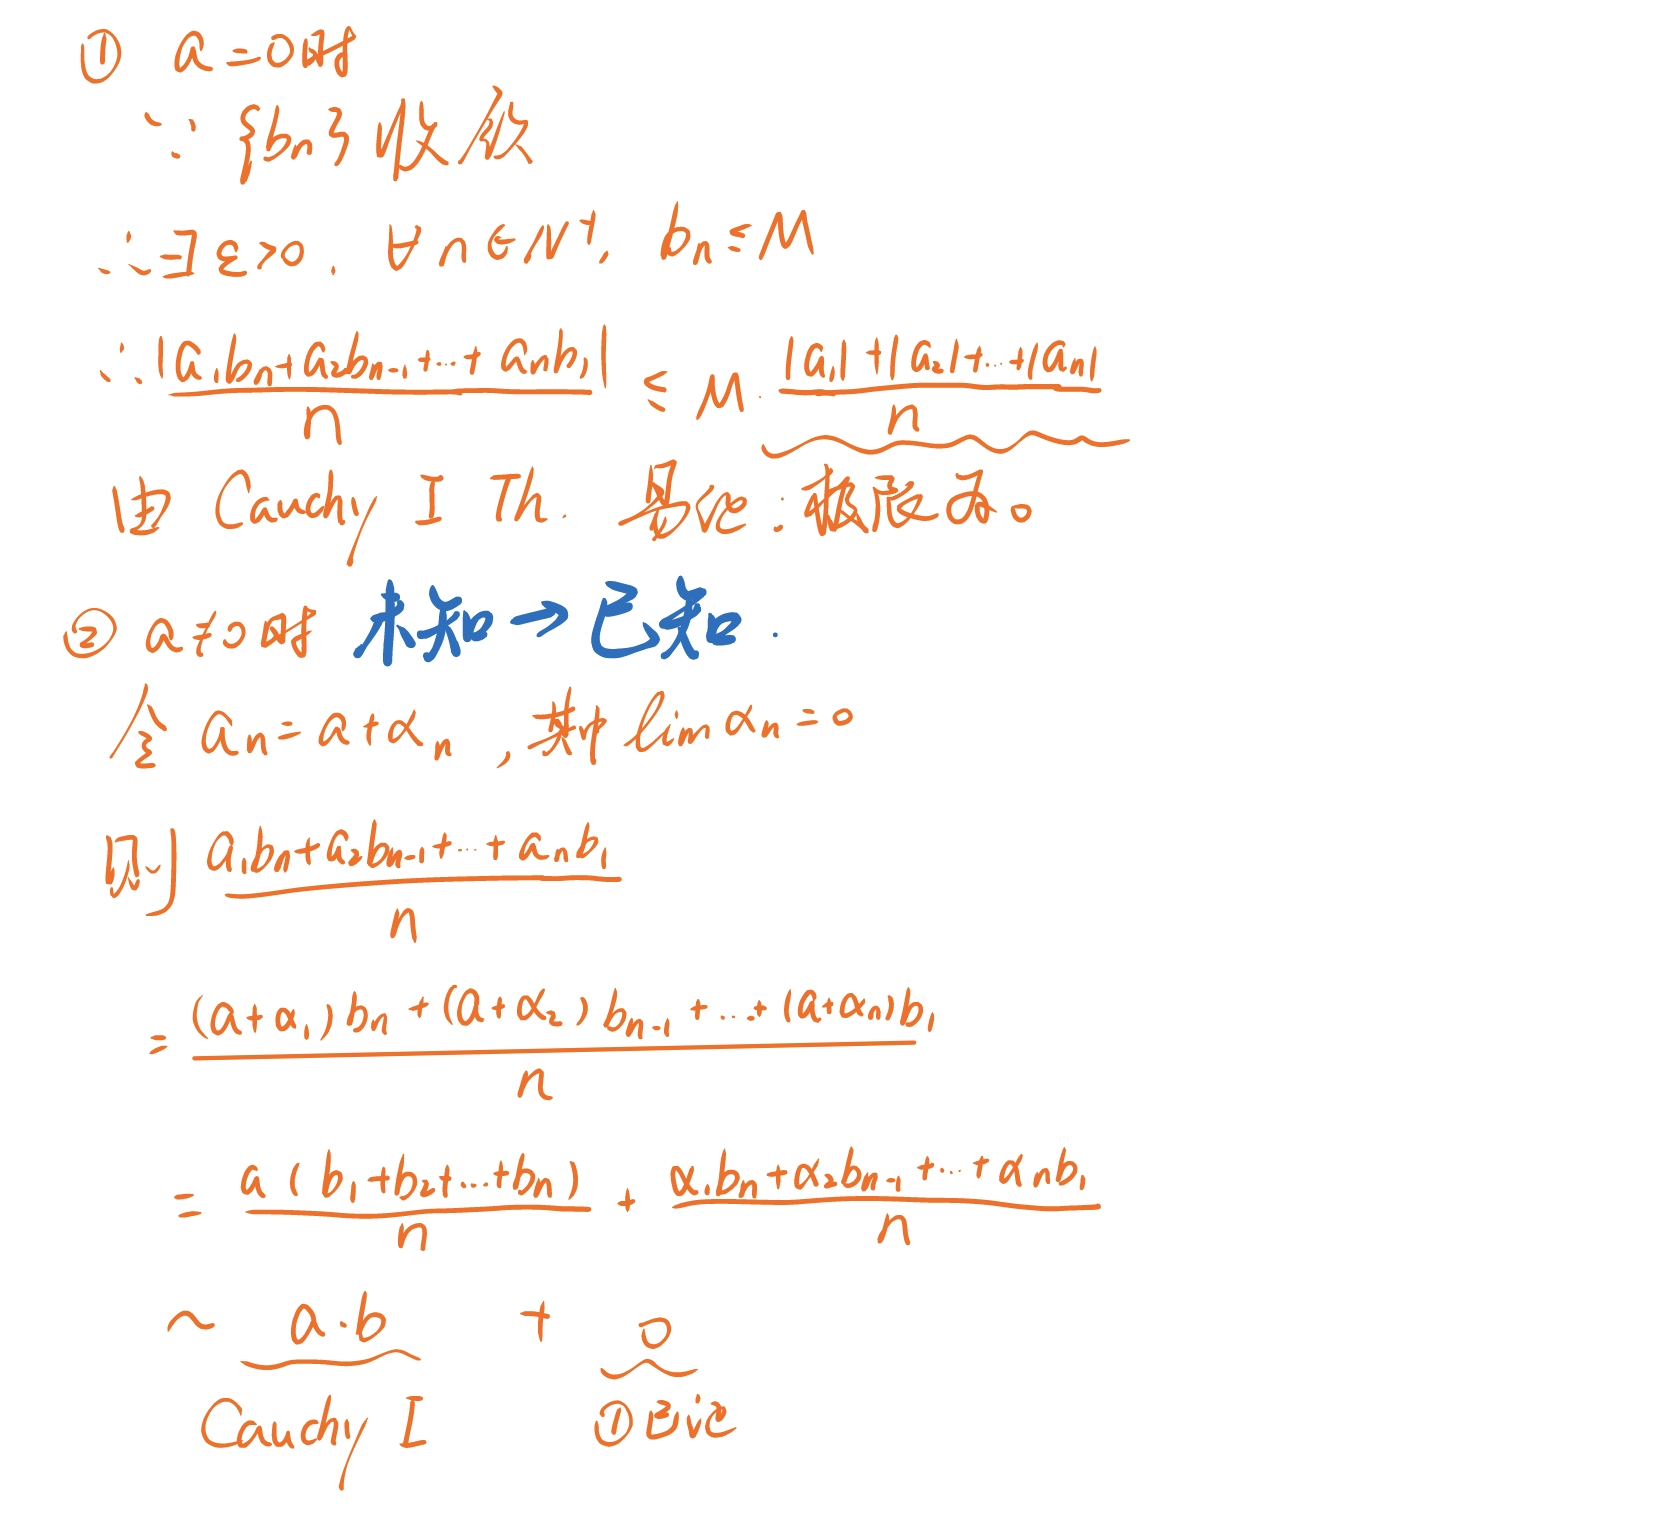 ① a=0时
∵ {bn} 收敛
∴∃ε>0, ∀n∈N⁺, bn≤M
∴ |a₁bn+a₂bn-1+...+anb₁| / n ≤ M · (|a₁|+|a₂|+...+|an|) / n
由 Cauchy I Th. 易证:极限为0
② a≠0时 未知→已知.
令 an=a+αn, 其中 lim αn=0
则 (a₁bn+a₂bn-1+...+anb₁) / n
= ((a+α₁)bn+(a+α₂)bn-1+...+(a+αn)b₁) / n
= a(b₁+b₂+...+bn) / n + (α₁bn+α₂bn-1+...+αnb₁) / n
~ a·b + 0
Cauchy I ①已证